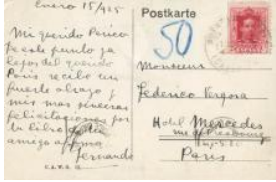 Enero 15/925
Mi querido Perico
De este punto ya
lejos del querido
Paris recibe un
fuerte abrazo y
mis mas sinceras
felicitaciones por
tu libro
amigo
Fernando
C.L.V.E.
Postkarte
50
Monsieur
Federico Vergara
Hotel Mercedes
rue de Presbourg
Paris